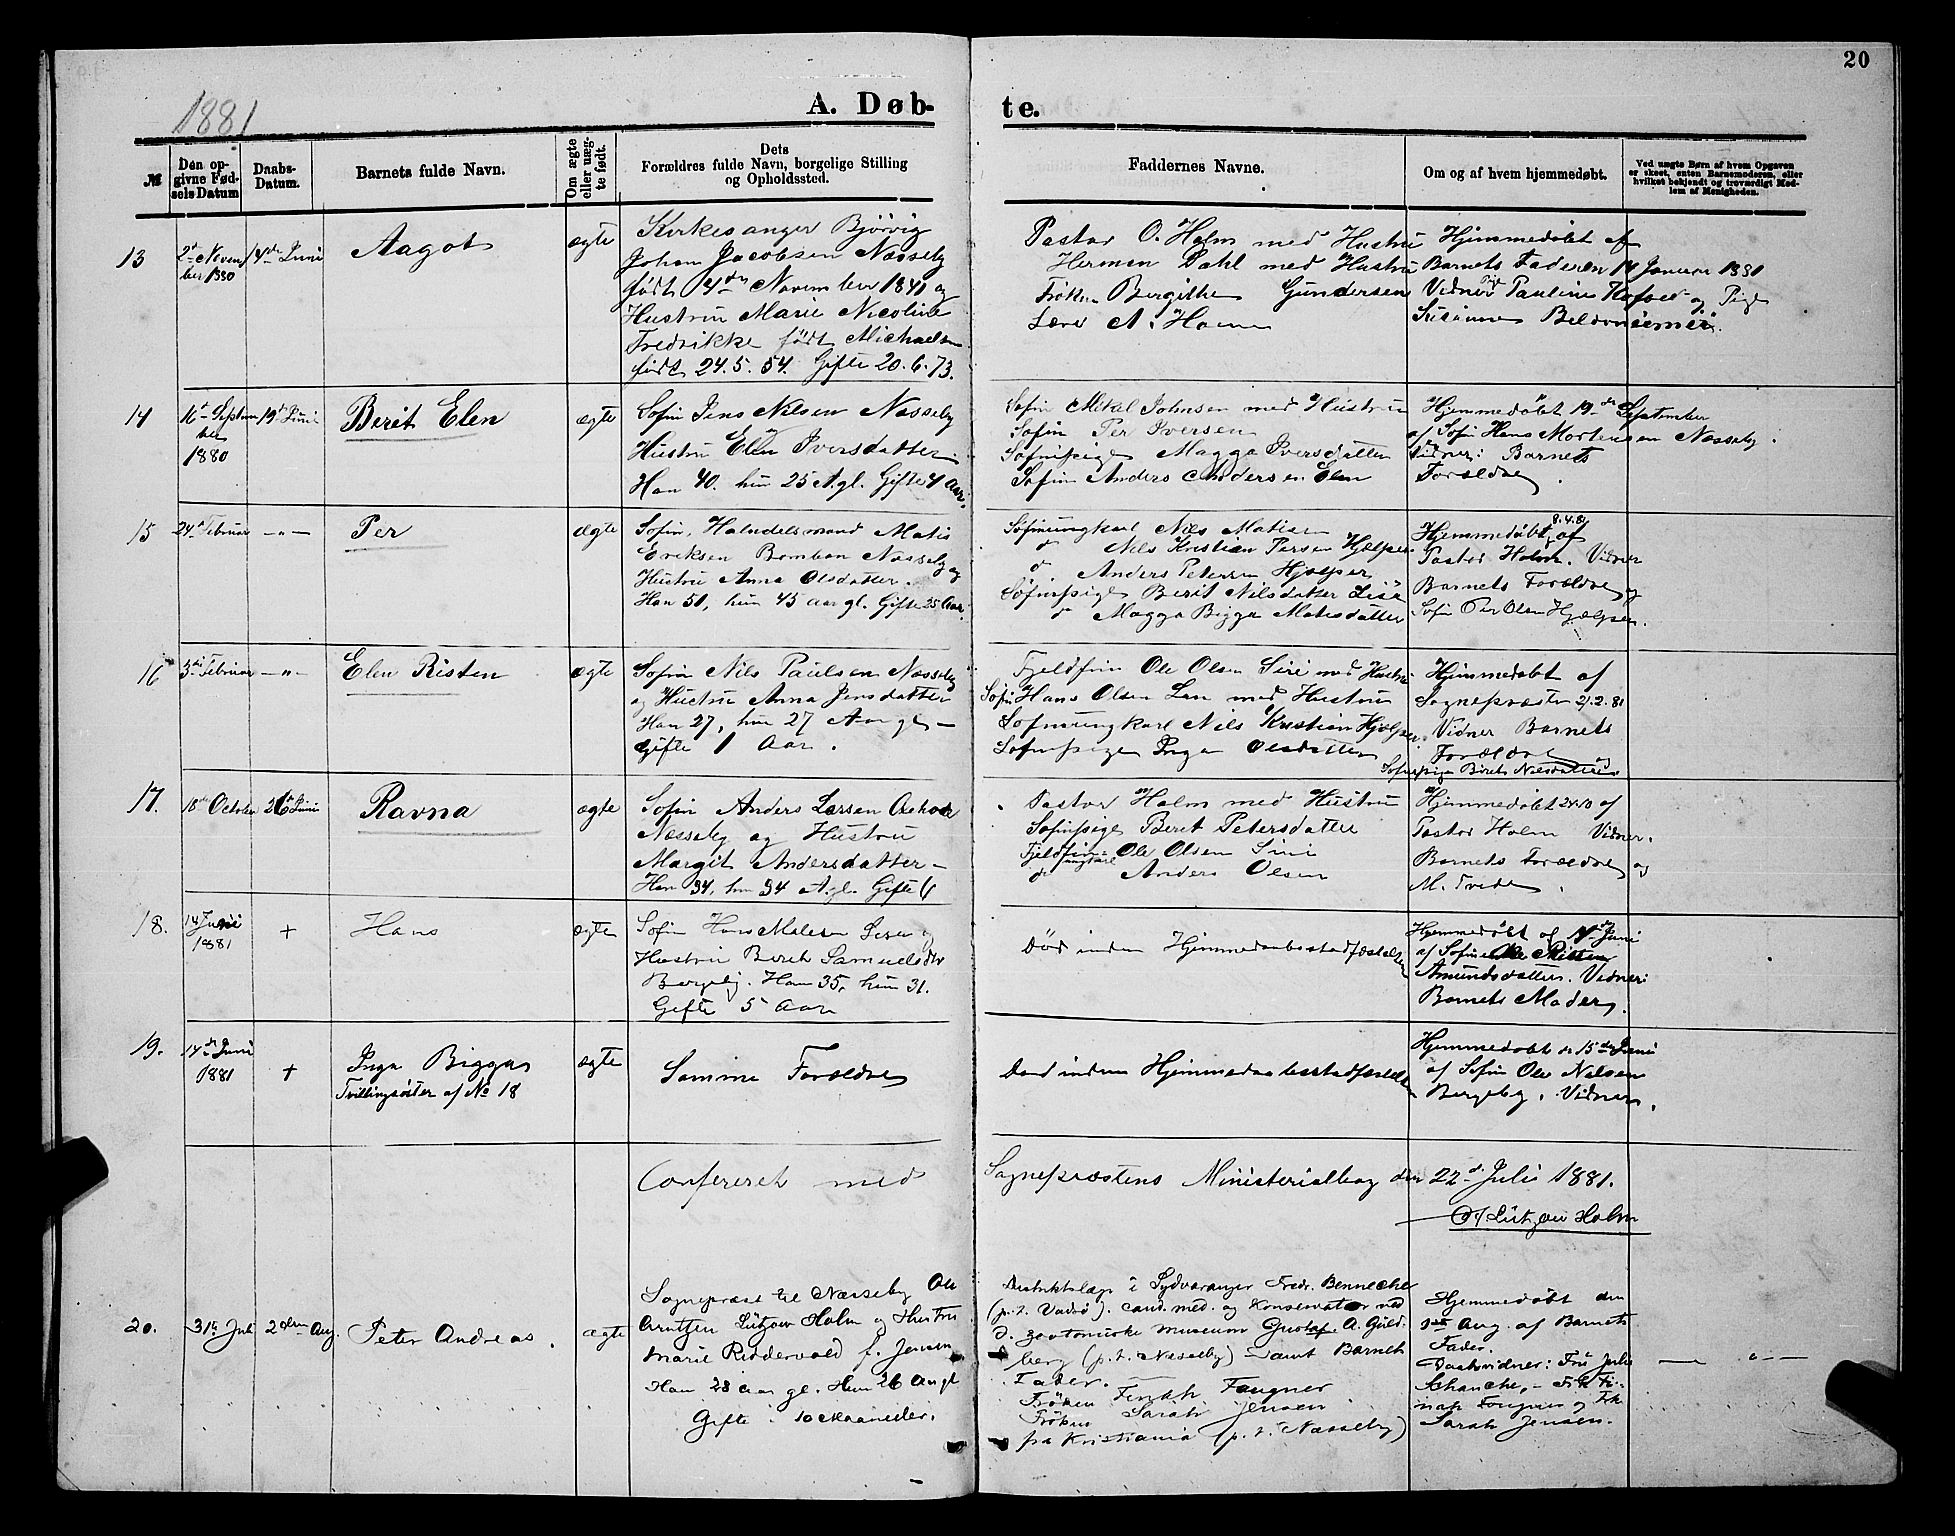 20
1881
A. Døb-
te.
№
Den op-
givne Fød-
sels Datum
Daabs-
Datum.
Barnets fulde Navn.
Om ægte
eller uæg-
te født.
Dets
Forældres fulde Navn, borgelige Stilling
og Opholdssted.
Faddernes Navne.
Om og af hvem hjemmedøbt.
Ved uægte Børn af hvem Opgaven
er skeet, enten Barnemoderen, eller
hvilket bekjendt og troværdigt Med-
lem af Menigheden.
13
2d Novem
ber 1880
Juni
Aagot
ægte
Kirkesanger Bjørvig
Johan Jacobsen Næsseby
født 4de November 1841 og
Hustru Marie Nicoline
Fredrikke født Michaelsen
født 24.5.54. Gifte 20.6.73.
Pastor O. Holm med Hustru
Herman Dahl med Hustru
Frøken Bergithe Gundersen
A. Holm
Hjemmedøbt af
Barnets Faderen 14 Januar 1881
Vidner Pige Pauline og Pige
14
16d Septem
ber
1880
19d Juni
Berit Elen
ægte
Søfin Jens Nilsen Næsseby
Hustru Elen Iversdatter.
Han 40. hun 25 A. gl. Gifte 4 Aar.
Søfin Mikel Johnsen med Hustru
Søfin Per Iversen
Søfinpige Magga Iversdatter
Søfin Anders Andersen Elen
Hjemmedøbt 19de September
af Søfin Hans Mortensen Næsseby.
Vidner: Barnets
Forældre.
15
24d Februar
-"-
Per
ægte
Søfin, Handelsmand Matis
Eriksen Bomban Næsseby og
Hustru Anna Olsdatter.
Han 51, hun 45 Aar gl. Gifte 25 Aar.
Søfinungkarl Nils Matisen
do Nils Kristian Persen Hjælper
do Anders Petersen Hjælper
Søfinpige Berit Nilsdatter
do Magga Bigga Matisdatter
8.4.81
Hjemmedøbt af
Pastor Holm. Vidner
Barnets Forældre og
Søfin Per Olsen Hjælper.
16
3die Februar
-"-
Elen Risten
ægte
Søfin Nils Paulsen Næsseby
og Hustru Anna Jensdatter
Han 27, hun 27 Aar gl. -
Gifte 1 Aar.
Fjeldfin Ole Olsen Siri med Hustru
Søfin Hans Olsen med Hustru
Søfinungkarl Nils Kristian Hjælper
Søfinpige Inga Olsdatter
Søfinpige Berit Nilsdatter
Hjemmedøbt af
Sognepræsten 21.2.81
Vidner Barnets
Forældre og
17.
10de October
26d Juni
Ravna
ægte
Søfin Anders Larsen
Næsseby og Hustru
Margit Andersdatter -
Han 34, hun 34 A. gl. Gifte
Pastor Holm med Hustru
Søfinpige Berit Petersdatter
Fjeldfin ungkarl Ole Olsen Siri
do Anders Olsen
Hjemmedøbt af
Pastor Holm Vidner.
Barnets Forældre og
M. Tvede.
18.
14 Juni
1881
+
Hans
ægte
Søfin Hans og
Hustru Berit Samuelsdtr
Bergeby. Han 35, hun 31.
Gifte 5 Aar
Død inden Hjemmedaabsstadfæstelsen
Hjemmedøbt Juni
af Søfin Risten
Amundsdatter. Vidner:
Barnets Moder.
19.
14de Juni
1881
+
Inga Bigga
Tvillingsøster af No 18
ægte
Samme Forældre
Død inden Hjemmedaabsstadfæstelsen
Hjemmedøbt 15de Juni
af Søfin Ole Nilsen
Bergeby. Vidner.
Confereret med
Sognepræstens Ministerialbog den 22d Juli 1881.
O. A. Lützow Holm
20.
31te Juli
2den Aug.
Peter Andreas.
ægte
Sognepræst til Næsseby Ole
Arntzen Lützow Holm og Hustru
Marie Riddervold f. Jensen
Han 28 aar gl. Hun 26 Aar gl
Gifte i 10 Maaneder.
Distriktslæge i Sydvaranger Fredr. Benneche
(p.t. Vadsø). cand. med. og Konservator ved
d. zootomiske museum Gustaf A. Guld-
berg (p.t. Næsseby) samt Barnets
Fader.
Frøken Fougner
Frøken Sarah Jensen
fra Kristiania (p.t. Næsseby)
Hjemmedøbt den
1ste Aug. af Barnets
Fader.
Daabsvidner: Fru Julie
Schanche, - Frk
Fougner og Frk
Sarah Jensen.
— " —